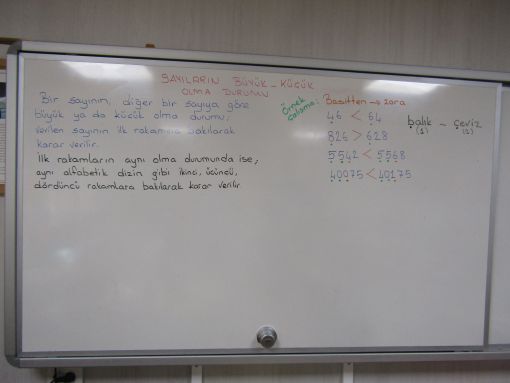 SAYILARIN BÜYÜK - KÜÇÜK
OLMA DURUMU
Bir sayının, diğer bir sayıya göre
büyük ya da küçük olma durumu;
verilen sayının ilk rakamına bakılarak
karar verilir.
İlk rakamların aynı olma durumunda ise,
aynı alfabetik dizin gibi ikinci, üçüncü,
dördüncü rakamlara bakılarak karar verilir.
Örnek
çalışma:
Basitten → zora
46 < 64
826 > 628
5542 < 5568
40075 < 40175
balık - çeviz
(1) (2)